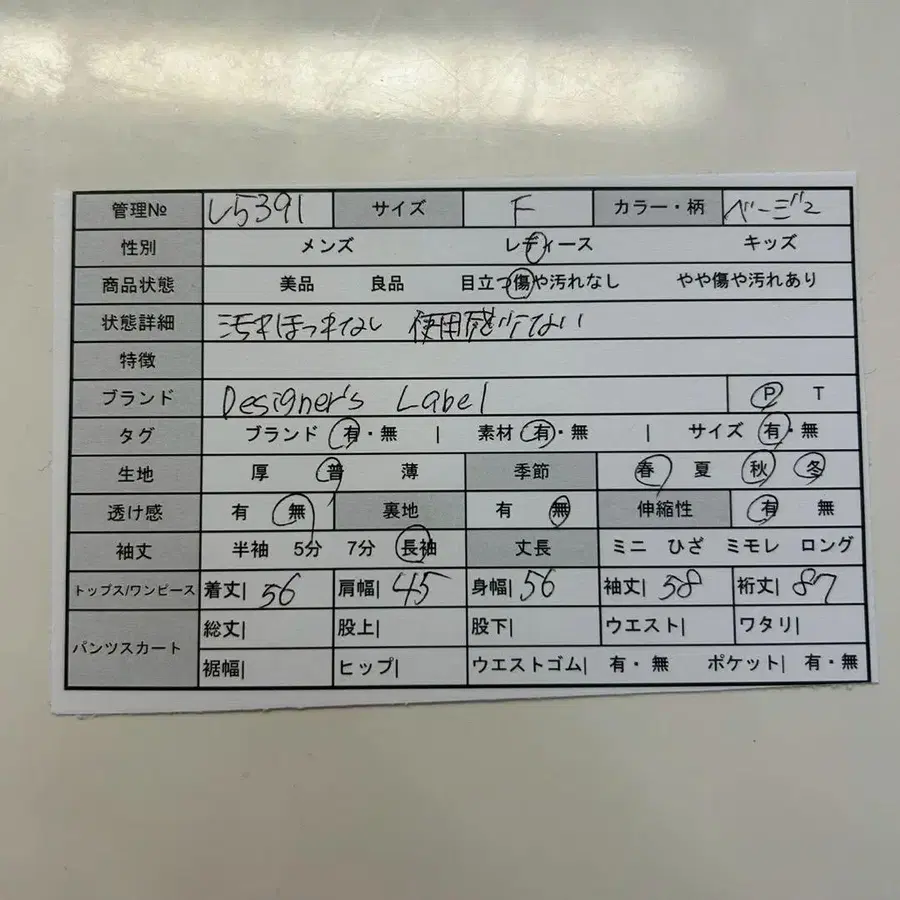 管理№ L5391 サイズ F カラー・柄 ベージュ
性別 メンズ レディース キッズ
商品状態 美品 良品 目立つ傷や汚れなし やや傷や汚れあり
状態詳細 汚れほつれなし 使用感少ない
特徴
ブランド Designer's Label P T
タグ ブランド 有・無 | 素材 有・無 | サイズ 有・無
生地 厚 普 薄 季節 春 夏 秋 冬
透け感 有 無 裏地 有 無 伸縮性 有 無
袖丈 半袖 5分 7分 長袖 丈長 ミニ ひざ ミモレ ロング
トップス/ワンピース 着丈| 56 肩幅| 45 身幅| 56 袖丈| 58 裄丈| 87
パンツスカート 総丈| 股上| 股下| ウエスト| ワタリ|
裾幅| ヒップ| ウエストゴム| 有・無 ポケット| 有・無